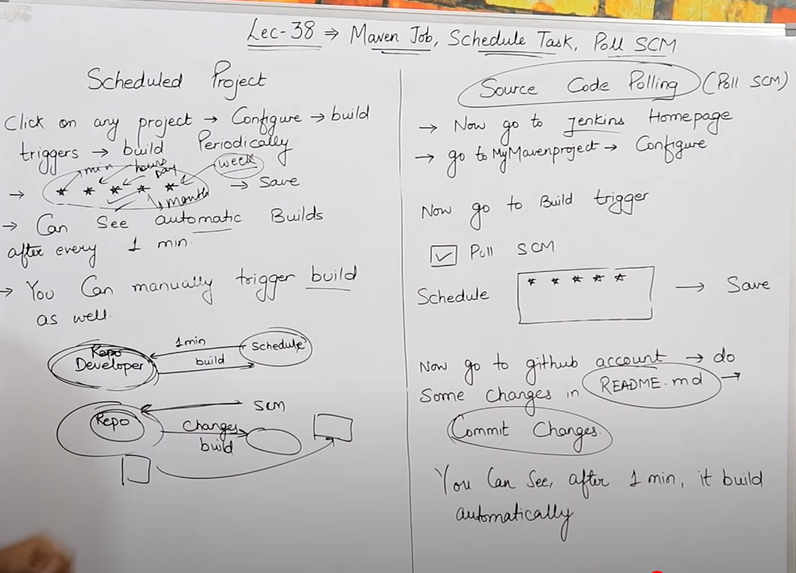 Lec-38 ⇒ Maven Job, Schedule Task, Poll SCM
Scheduled Project
Click on any project → Configure → build
triggers → build Periodically
min hours Day week
→ * * * * * → Save
month
→ Can See automatic Builds
after every 1 min.
→ You Can manually trigger build
as well.
1min
Repo Schedule
Developer build
SCM
Repo Changes
build
Source Code Polling (Poll SCM)
→ Now go to Jenkins Homepage
→ go to MyMavenproject → Configure
Now go to Build trigger
☑ Poll SCM
Schedule * * * * * → Save
Now go to github account → do
Some Changes in README.md →
Commit Changes.
You Can See, after 1 min, it build
automatically